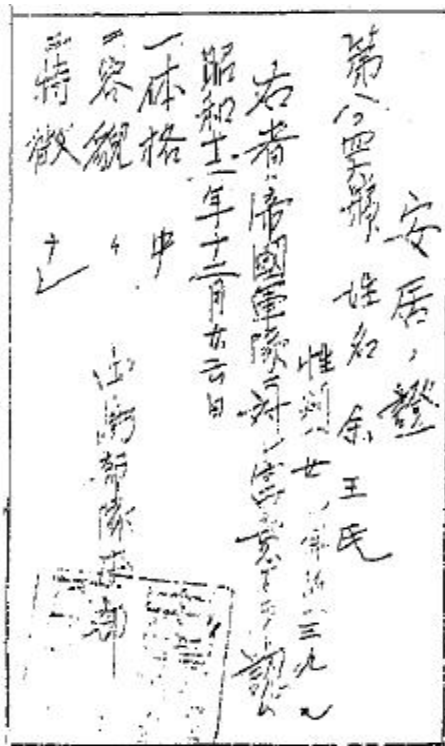 安居ノ證
姓名 余王氏
性別 女 年齢 三九
右者ハ帝國軍隊ニ対シ害意ナキヲ認ム
昭和十二年十二月廿六日
一体格 中
二容貌 〃
三特徴 ナシ
部隊本部